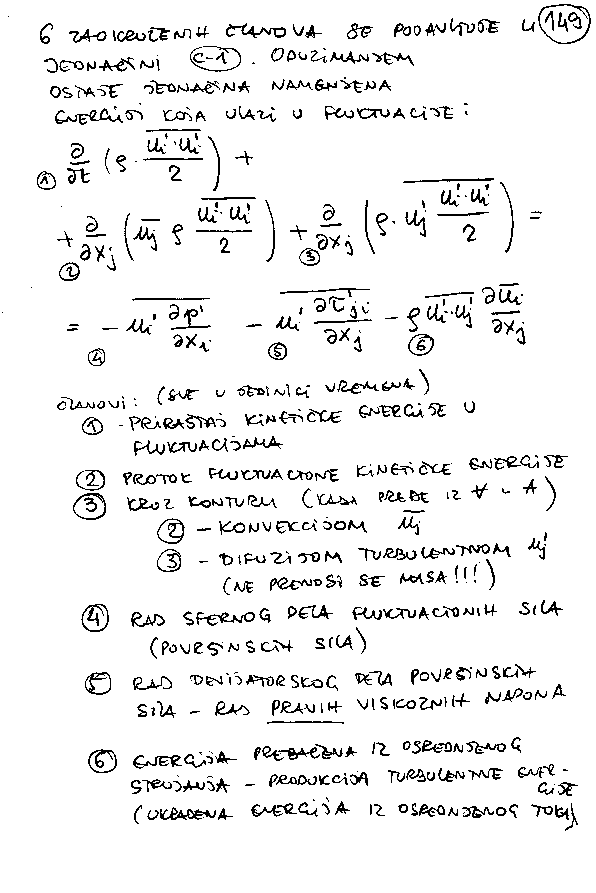 6 ZAOKRUŽENIH ČLANOVA SE PODAVLJUJE U (149)
JEDNAČINI (C-1). ODUZIMANJEM
OSTAJE JEDNAČINA NAMENJENA
ENERGIJI KOJA ULAZI U FLUKTUACIJE:
① ∂/∂t (ρ · \overline{u_i'·u_i'}/2) +
+ ② ∂/∂x_j (\overline{u_j} ρ \overline{u_i'·u_i'}/2) + ③ ∂/∂x_j (ρ · \overline{u_j' u_i'·u_i'/2}) =
= − ④ \overline{u_i' ∂p'/∂x_i} − ⑤ \overline{u_i' ∂τ'_{ji}/∂x_j} − ⑥ ρ \overline{u_i'·u_j'} ∂\overline{u_i}/∂x_j
ČLANOVI: (SVE U JEDINICI VREMENA)
① - PRIRAŠTAJ KINETIČKE ENERGIJE U
FLUKTUACIJAMA
② PROTOK FLUKTUACIONE KINETIČKE ENERGIJE
③ KROZ KONTURU (KADA PREĐE IZ V U A)
② - KONVEKCIJOM \overline{u_j}
③ - DIFUZIJOM TURBULENTNOM u_j'
(NE PRENOSI SE MASA!!!)
④ RAD SFERNOG DELA FLUKTUACIONIH SILA
(POVRŠINSKIH SILA)
⑤ RAD DEVIJATORSKOG DELA POVRŠINSKIH
SILA - RAD PRAVIH VISKOZNIH NAPONA
⑥ ENERGIJA PREBAČENA IZ OSREDNJENOG
STRUJANJA - PRODUKCIJA TURBULENTNE ENER-
GIJE
(UKRADENA ENERGIJA IZ OSREDNJENOG TOKA)